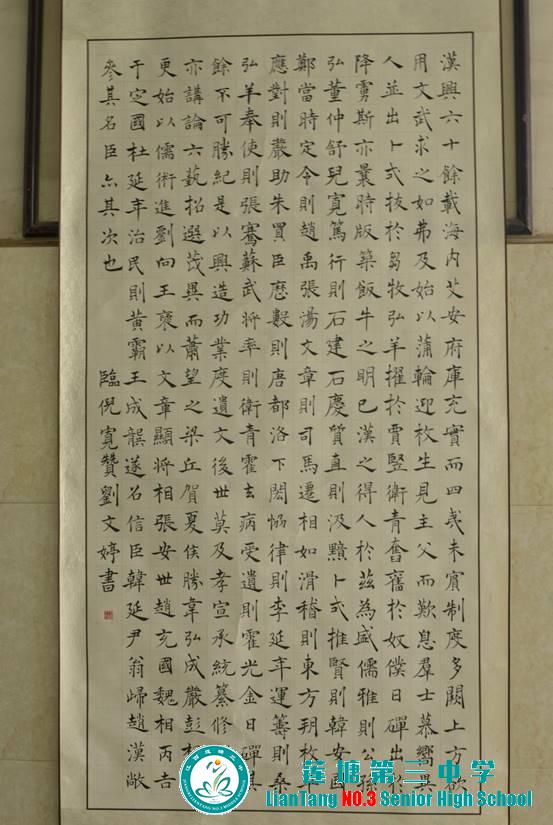 漢興六十餘載海内艾安府庫充實而四夷未賓制度多闕上方欲
用文武求之如弗及始以蒲輪迎枚生見主父而歎息羣士慕嚮異
人並出卜式拔於芻牧弘羊擢於賈豎衛青奮於奴僕日磾出於
降虜斯亦曩時版築飯牛之明已漢之得人於茲為盛儒雅則公孫
弘董仲舒兒寬篤行則石建石慶質直則汲黯卜式推賢則韓安國
鄭當時定令則趙禹張湯文章則司馬遷相如滑稽則東方朔枚
應對則嚴助朱買臣歷數則唐都洛下閎恊律則李延年運籌則桑
弘羊奉使則張騫蘇武將率則衛青霍去病受遺則霍光金日磾其
餘不可勝紀是以興造功業度遺文後世莫及孝宣承統纂修
亦講論六藝招選茂異而蕭望之梁丘賀夏侯勝韋弘成嚴彭
更始以儒術進劉向王襃以文章顯將相張安世趙充國魏相丙吉
于定國杜延年治民則黄霸王成龔遂召信臣韓延尹翁歸趙漢敞
參其名臣亦其次也
臨倪寬贊劉文婷書
莲塘第三中学
LianTang NO.3 Senior High School